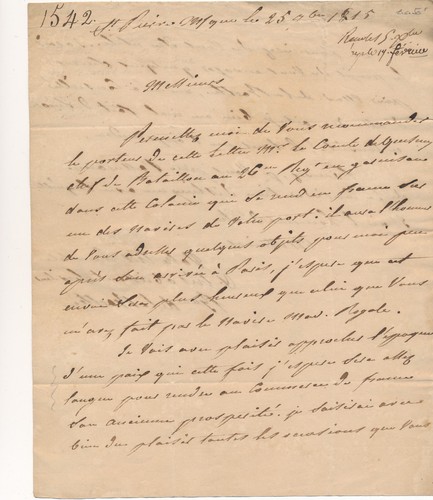 1542. St Pierre Mque le 25 1815
février
Messieurs
Permettez moi de Vous recommander
le porteur de cette lettre Mr. le Comte de
chef de Bataillon au 26me Regt en garnison
dans cette Colonie qui se rend en france sur
un des Navires de Votre port. il aura l'honneur
de Vous adresser quelques objets pour moi peu
après son arrivée à Paris, j'espere que cet
envoi sera plus heureux que celui que Vous
m'avez fait par le Navire Mad. Royale.
Je Vois avec plaisir approcher l'époque
d'une paix qui cette fois j'espere sera assez
longue pour rendre au Commerce de france
son ancienne prosperité. je saisirai avec
bien du plaisir toutes les occasions que Vous